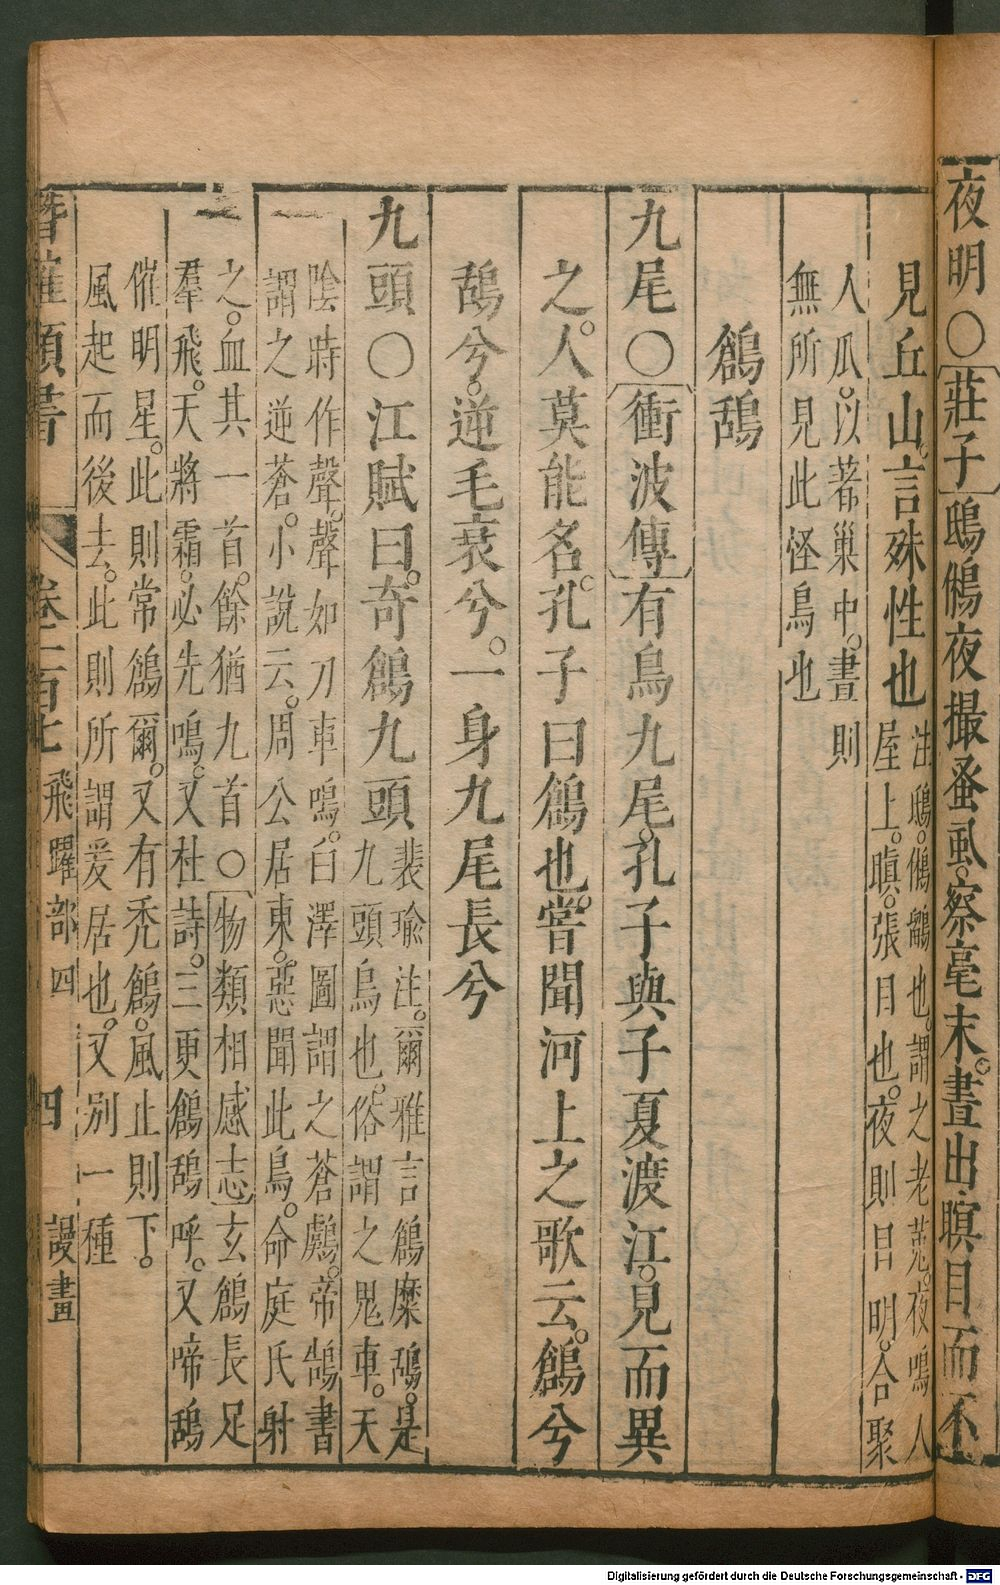 夜明〇莊子鴟鵂夜撮蚤虱察毫末晝出瞑目而不
見丘山言殊性也
注鴟鵂鶹也謂之老䒥夜鳴人
屋上瞋張目也夜則目明合聚
人瓜以著巢中晝則
無所見此怪鳥也
鶬鴰
九尾〇衝波傳有鳥九尾孔子與子夏渡江見而異
之人莫能名孔子曰鶬也嘗聞河上之歌云鶬兮
鴰兮逆毛衰兮一身九尾長兮
九頭〇江賦曰奇鶬九頭
裴瑜注爾雅言鶬麋鴰是
九頭鳥也俗謂之鬼車天
陰時作聲聲如刀車鳴白澤圖謂之蒼鸆帝鵠書
謂之逆蒼小說云周公居東惡聞此鳥命庭氏射
之血其一首餘猶九首〇物類相感志玄鶬長足
羣飛天將霜必先鳴又杜詩三更鶬鴰呼又啼鴰
催明星此則常鶬爾又有禿鶬風止則下
風起而後去此則所謂爰居也又別一種
潛確類書 卷一百七 飛躍部四 四 謾畫
Digitalisierung gefördert durch die Deutsche Forschungsgemeinschaft - DFG